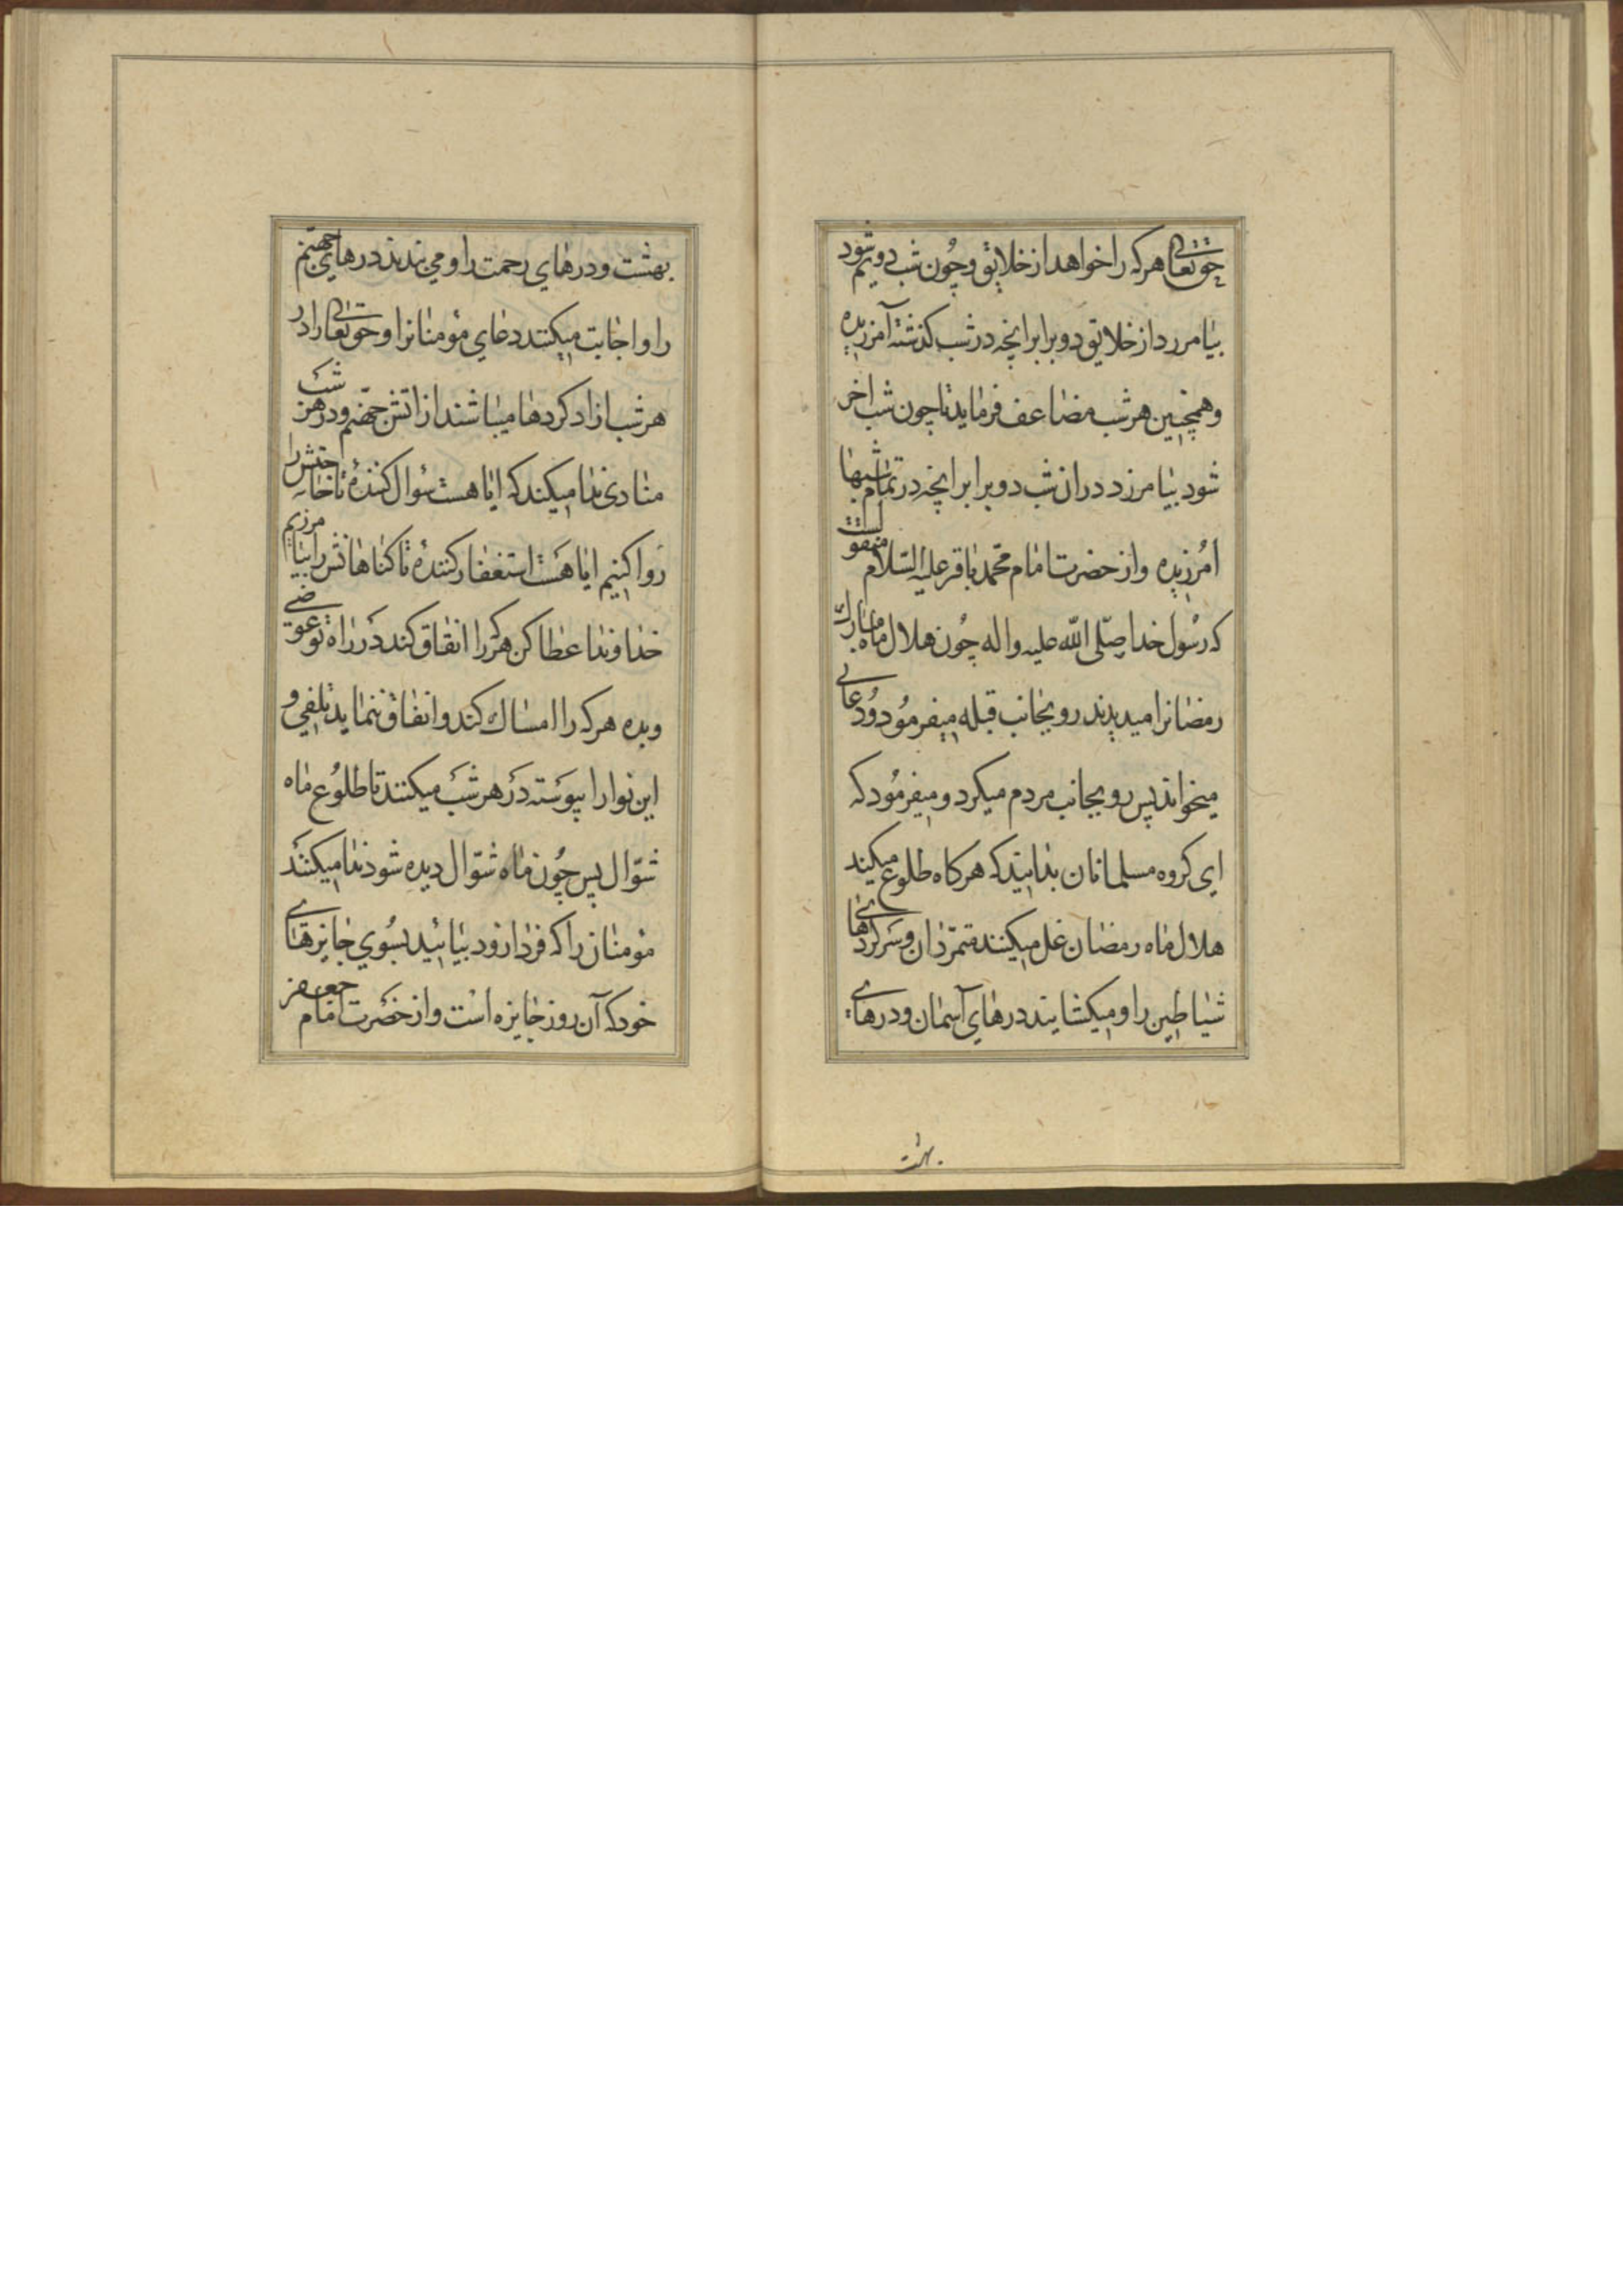 حقتعالی هرکه را خواهد از خلایق و چون شب دویم شود
بیامرزد از خلایق دو برابر آنچه در شب کذشته آمرزیده
و همچنین هر شب مضاعف فرماید تا چون شب اخر
شود بیامرزد در ان شب دو برابر انچه در تمام شبها
امرزیده و از حضرت امام محمد باقر علیه السلام منقولست
که رسول خدا صلی الله علیه و اله چون هلال ماه مبارک
رمضانرا میدیدند رو بجانب قبله میفرمودند و دعائی
میخواند پس رو بجانب مردم میکرد و میفرمود که
ای کروه مسلمانان بدانید که هرکاه طلوع میکند
هلال ماه رمضان غل میکنند متمردان و سرکردهای
شیاطین را و میکشایند درهای آسمان و درهای
بهشت
بهشت و درهای رحمت را و می بندند درهای جهنم
را و اجابت میکنند دعای مؤمنانرا و حقتعالی را در
هر شب ازاد کردها میباشند از اتش جهنم و در هر شب
منادی ندا میکند که ایا هست سؤال کننده تا حاجتش را
روا کنیم ایا هست استغفار کننده تا کناهانش را بیامرزیم
خداوندا عطا کن هرکه را انفاق کند در راه تو عوضی
و بده هرکه را امساک کند و انفاق ننماید تلفی و
این نوا را پیوسته در هر شب میکنند تا طلوع ماه
شوّال پس چون ماه شوّال دیده شود ندا میکنند
مؤمنان را که فردا زود بیائید بسوی جایزهای
خود که آن روز جایزه است و از حضرت امام جعفر